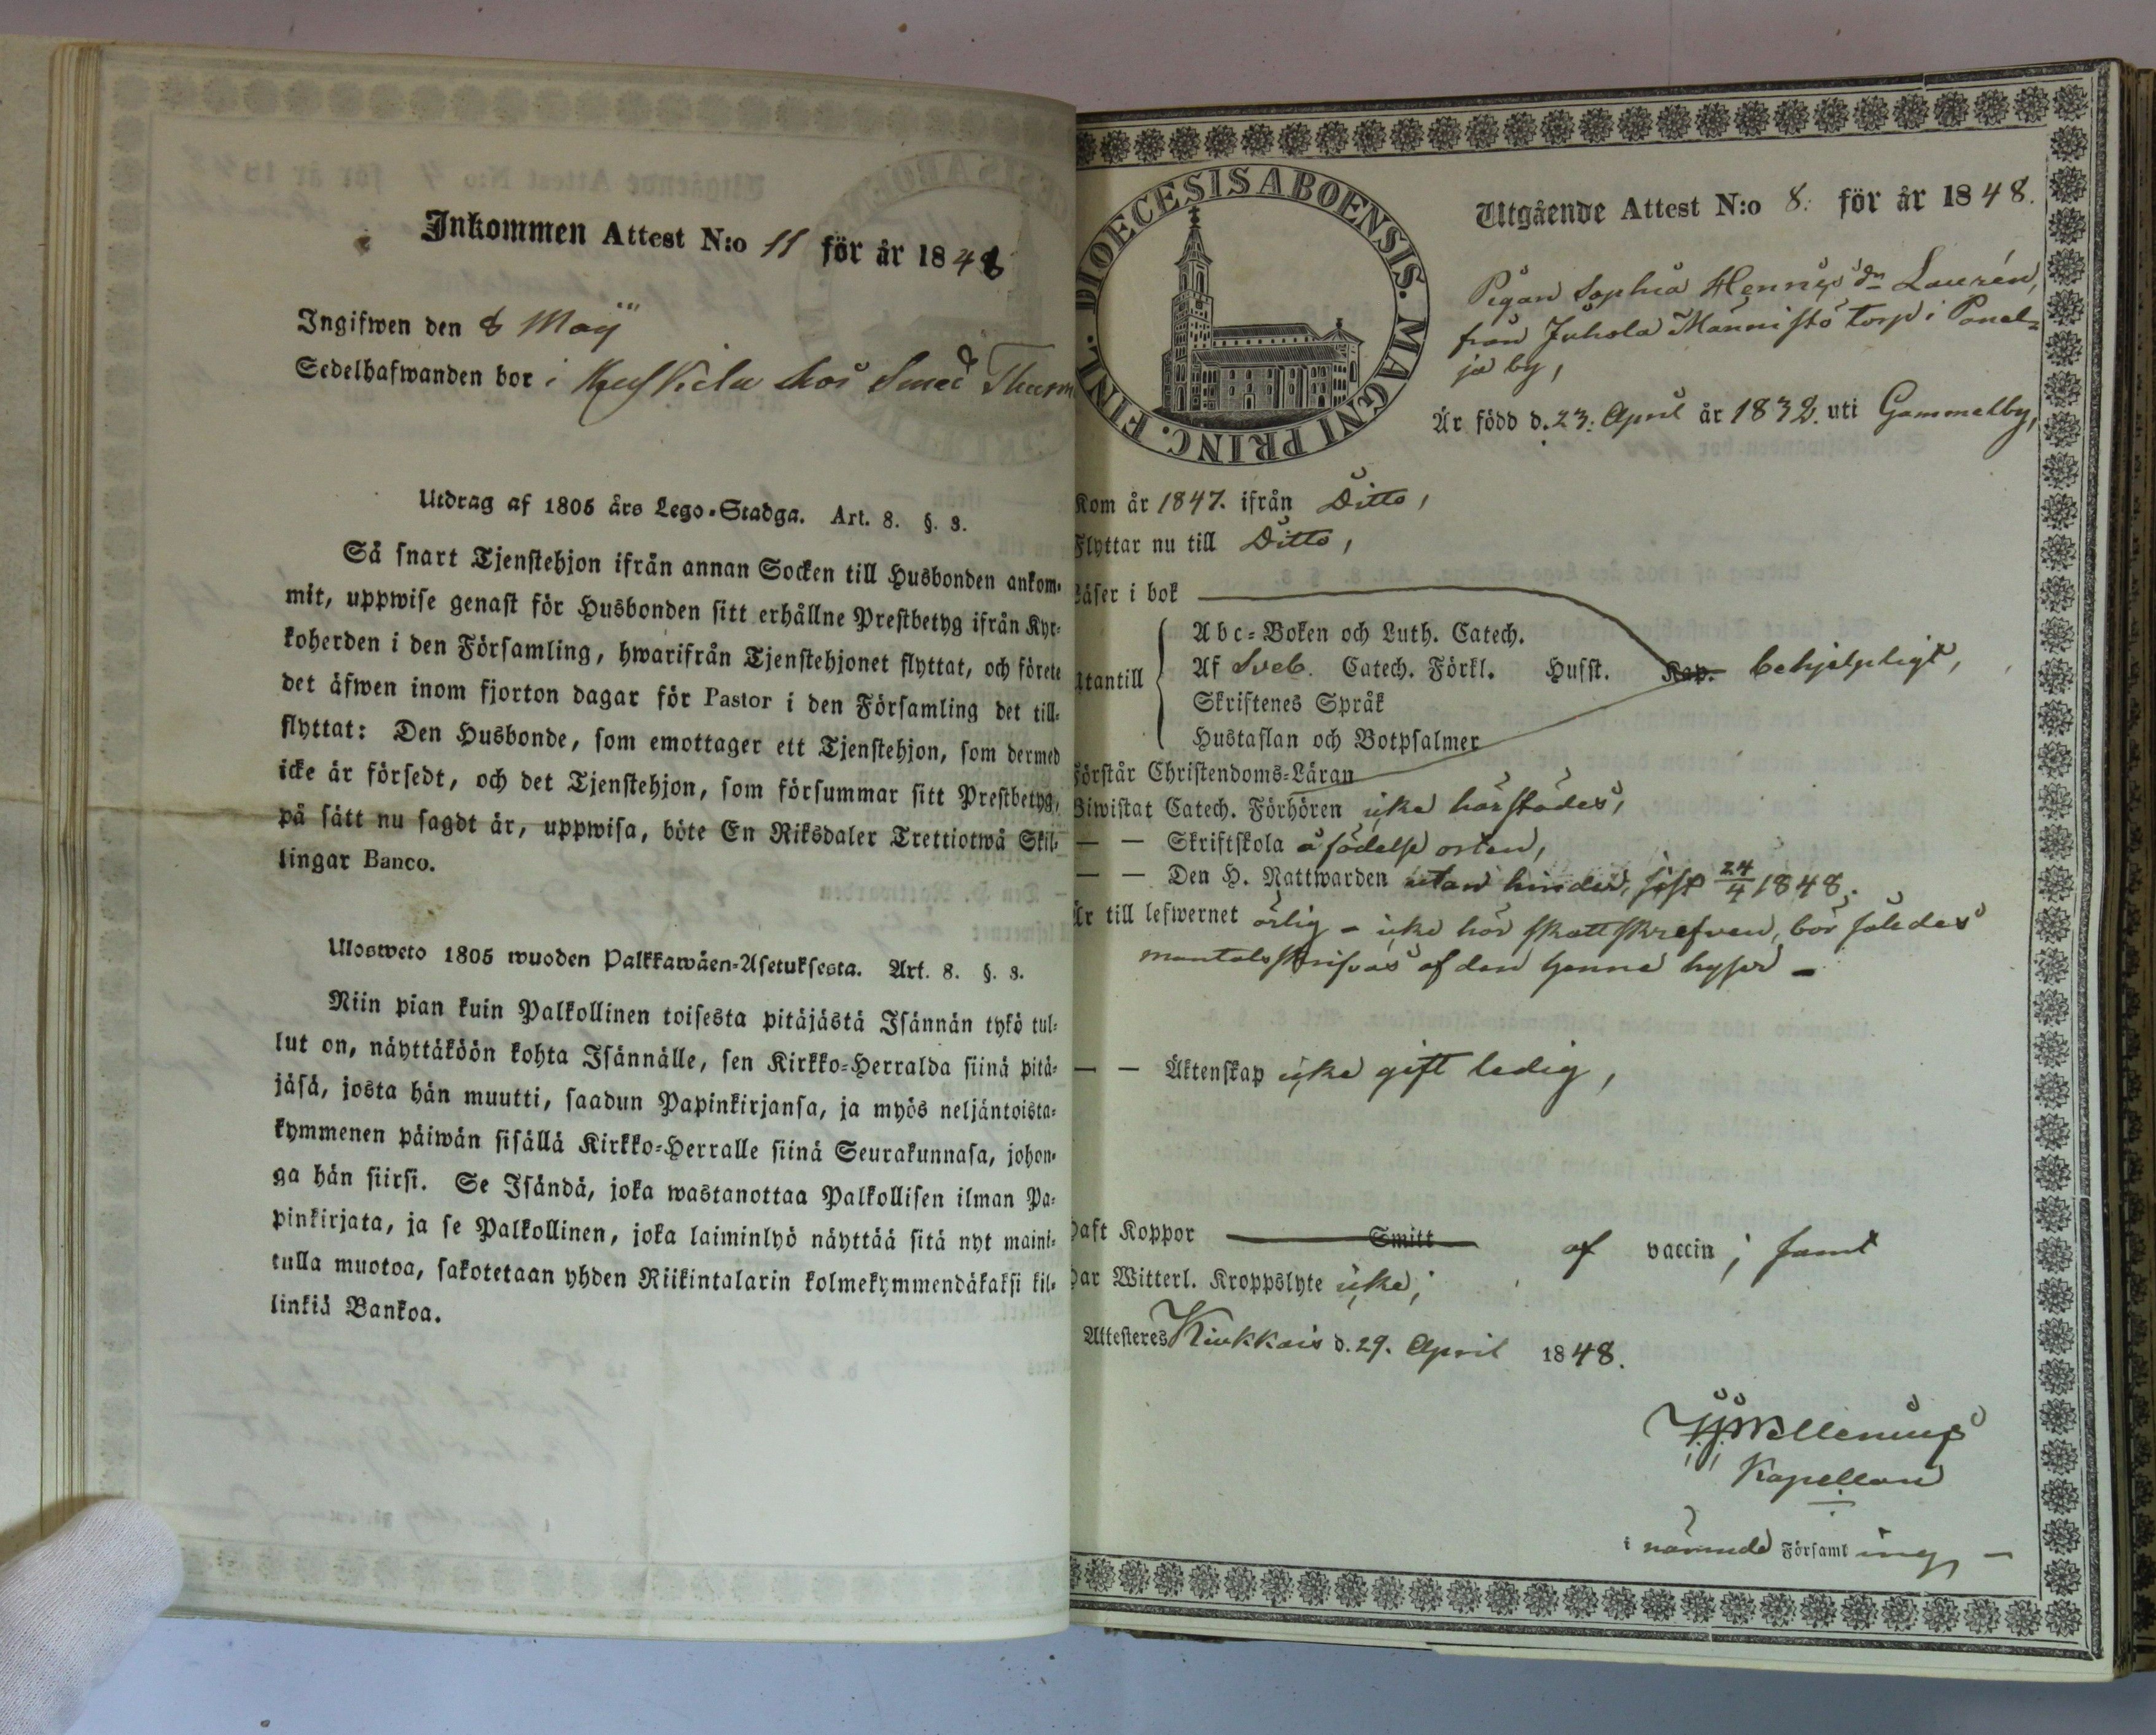 Inkommen Attest N:o 11 för år 1848
Ingifwen den 8 Maij
Sedelhafwanden bor i hos Smed
Utdrag af 1805 års Lego-Stadga. Art. 8. §. 3.
Så snart Tjenstehjon ifrån annan Socken till Husbonden ankom-
mit, uppwise genast för Husbonden sitt erhållne Prestbetyg ifrån Kyr-
koherden i den Församling, hwarifrån Tjenstehjonet flyttat, och förete
det äfwen inom fjorton dagar för Pastor i den Församling det till-
flyttat: Den Husbonde, som emottager ett Tjenstehjon, som dermed
icke är försedt, och det Tjenstehjon, som försummar sitt Prestbetyg,
på sätt nu sagdt är, uppwisa, böte En Riksdaler Trettiotwå Skil-
lingar Banco.
Ulosweto 1805 wuoden Palkkawäen-Asetuksesta. Art. 8. §. 3.
Niin pian kuin Palkollinen toisesta pitäjästä Isännän tykö tul-
lut on, näyttäköön kohta Isännälle, sen Kirkko-Herralda siinä pitä-
jäsä, josta hän muutti, saadun Papinkirjansa, ja myös neljäntoista-
kymmenen päiwän sisällä Kirkko-Herralle siinä Seurakunnasa, johon-
ga hän siirsi. Se Isändä, joka wastanottaa Palkollisen ilman Pa-
pinkirjata, ja se Palkollinen, joka laiminlyö näyttää sitä nyt maini-
tulla muotoa, sakotetaan yhden Riikintalarin kolmekymmendäkaksi kil-
linkiä Bankoa.
DIOECESIS ABOENSIS. MAGNI PRINC. FINL.
Utgående Attest N:o 8. för år 1848.
Pigan Sophia Henriksdr Laurén,
från Juhola Männistö torp i Panel=
ja by,
Är född d. 23. April år 1832. uti Gammelby,
Kom år 1847. ifrån Ditto,
Flyttar nu till Ditto,
Läser i bok
Abc-Boken och Luth. Catech.
Utantill Af Sveb. Catech. Förkl. Husst. Kap. behjelpligt,
Skriftenes Språk
Hustaflan och Botpsalmer
Förstår Christendoms-Läran
Biwistat Catech. Förhören icke härstädes,
— — Skriftskola å födelse orten,
— — Den H. Nattwarden utan hinder, sist 24/4 1848.
Är till lefwernet ärlig - icke här skattskrefven, bör således
mantalsskrifvas af den henne hyser -
— — Äktenskap icke gift ledig,
Haft Koppor Smitt af vaccin; samt
Har Witterl. Kroppslyte icke;
Attesteres Kiukkais d. 29. April 1848.
Kapellan
i nämnde Församling -